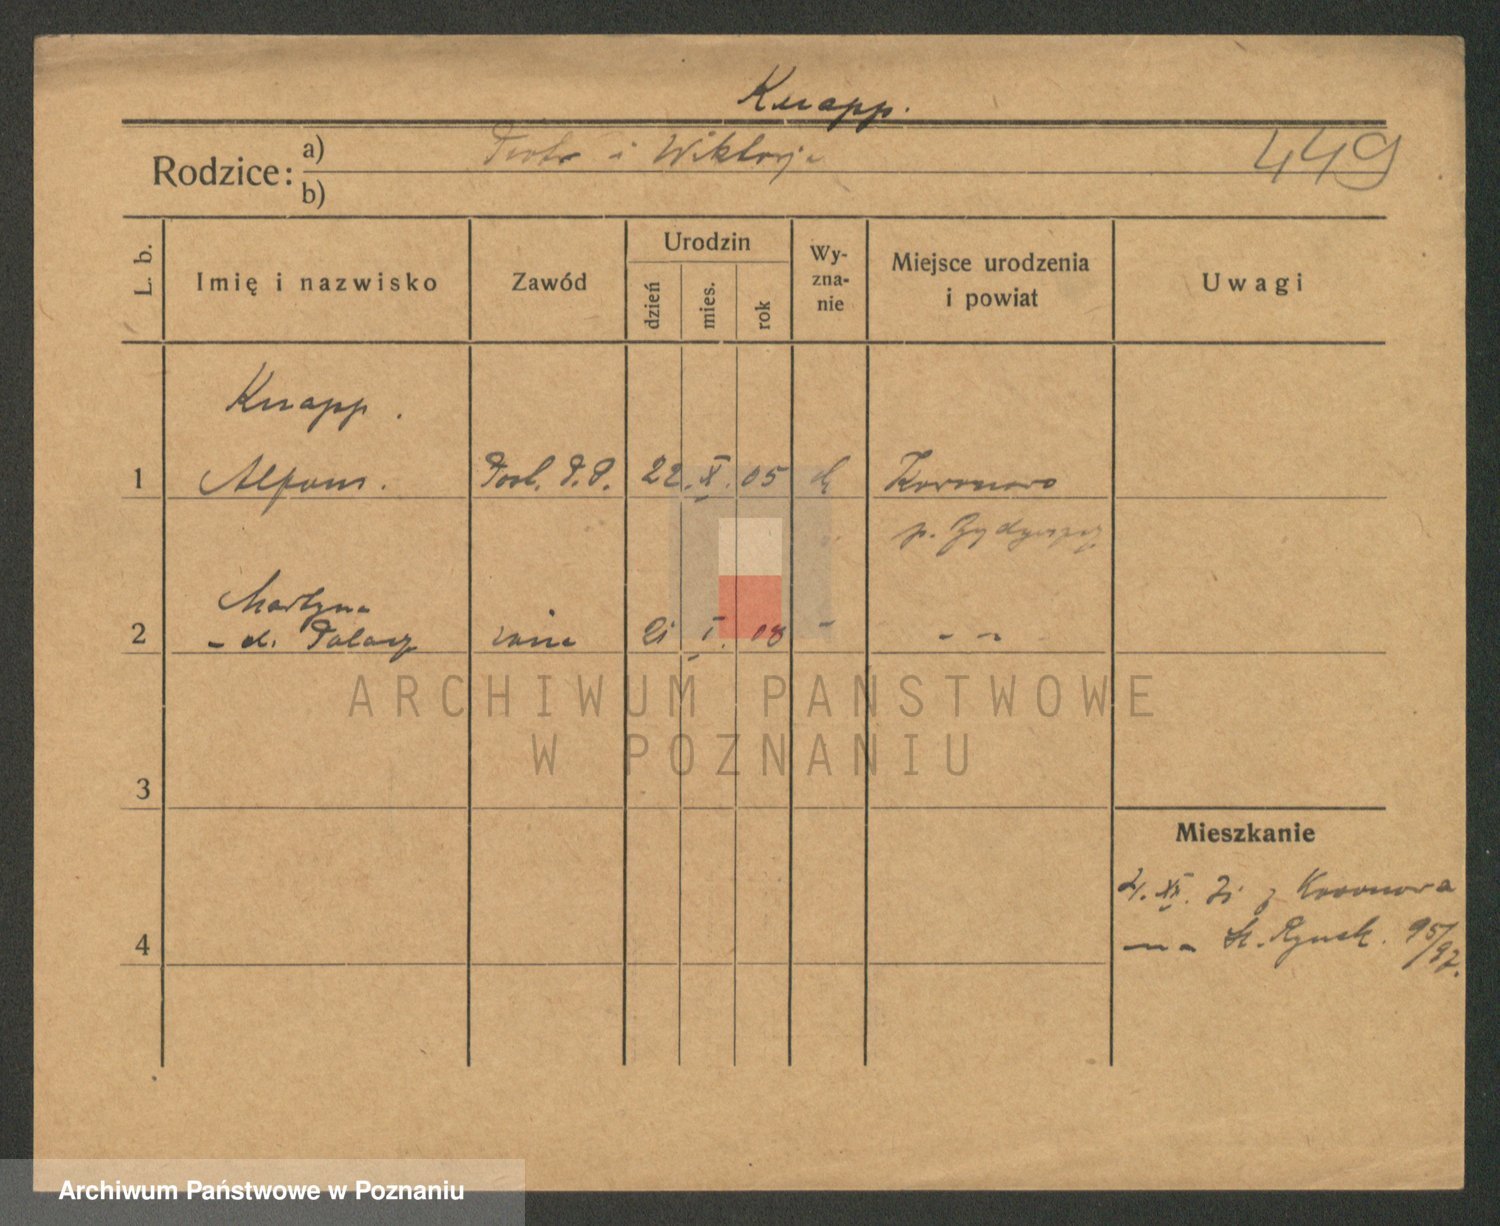 Knapp.
Rodzice: a) Piotr i Wiktorja
449
b)
L. b.
Imię i nazwisko
Zawód
Urodzin
dzień
mies.
rok
Wy-
zna-
nie
Miejsce urodzenia
i powiat
Uwagi
Knapp.
1 Alfons. 22. X. 05 Koronowo
p. Bydgoszcz
Martyna
2 - d. żona 21 I. 08 - - -
ARCHIWUM PAŃSTWOWE
W POZNANIU
3
Mieszkanie
XI. 31 z Koronowa
4
na St. Rynek. 95/97.
Archiwum Państwowe w Poznaniu